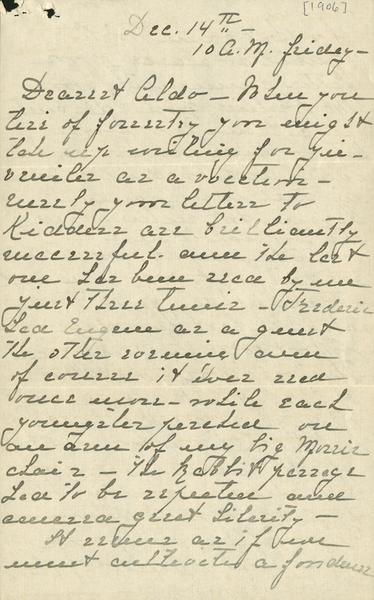 [1906]
Dec. 14th—
10 A.M. friday—
Dearest Aldo— When you
tire of forestry you might
take up writing for ju-
veniles as a vocation—
surely your letters to
Kidders are brilliantly
successful. and the last
one has been read by me
just three times— Frederic
had Eugene as a guest
the other evening and
of course it was read
once more— while each
youngster perched on
an arm of my big Morris
chair— The Rabbit passage
had to be repeated and
caused great hilarity—
It seems as if we
must cultivate a fondness